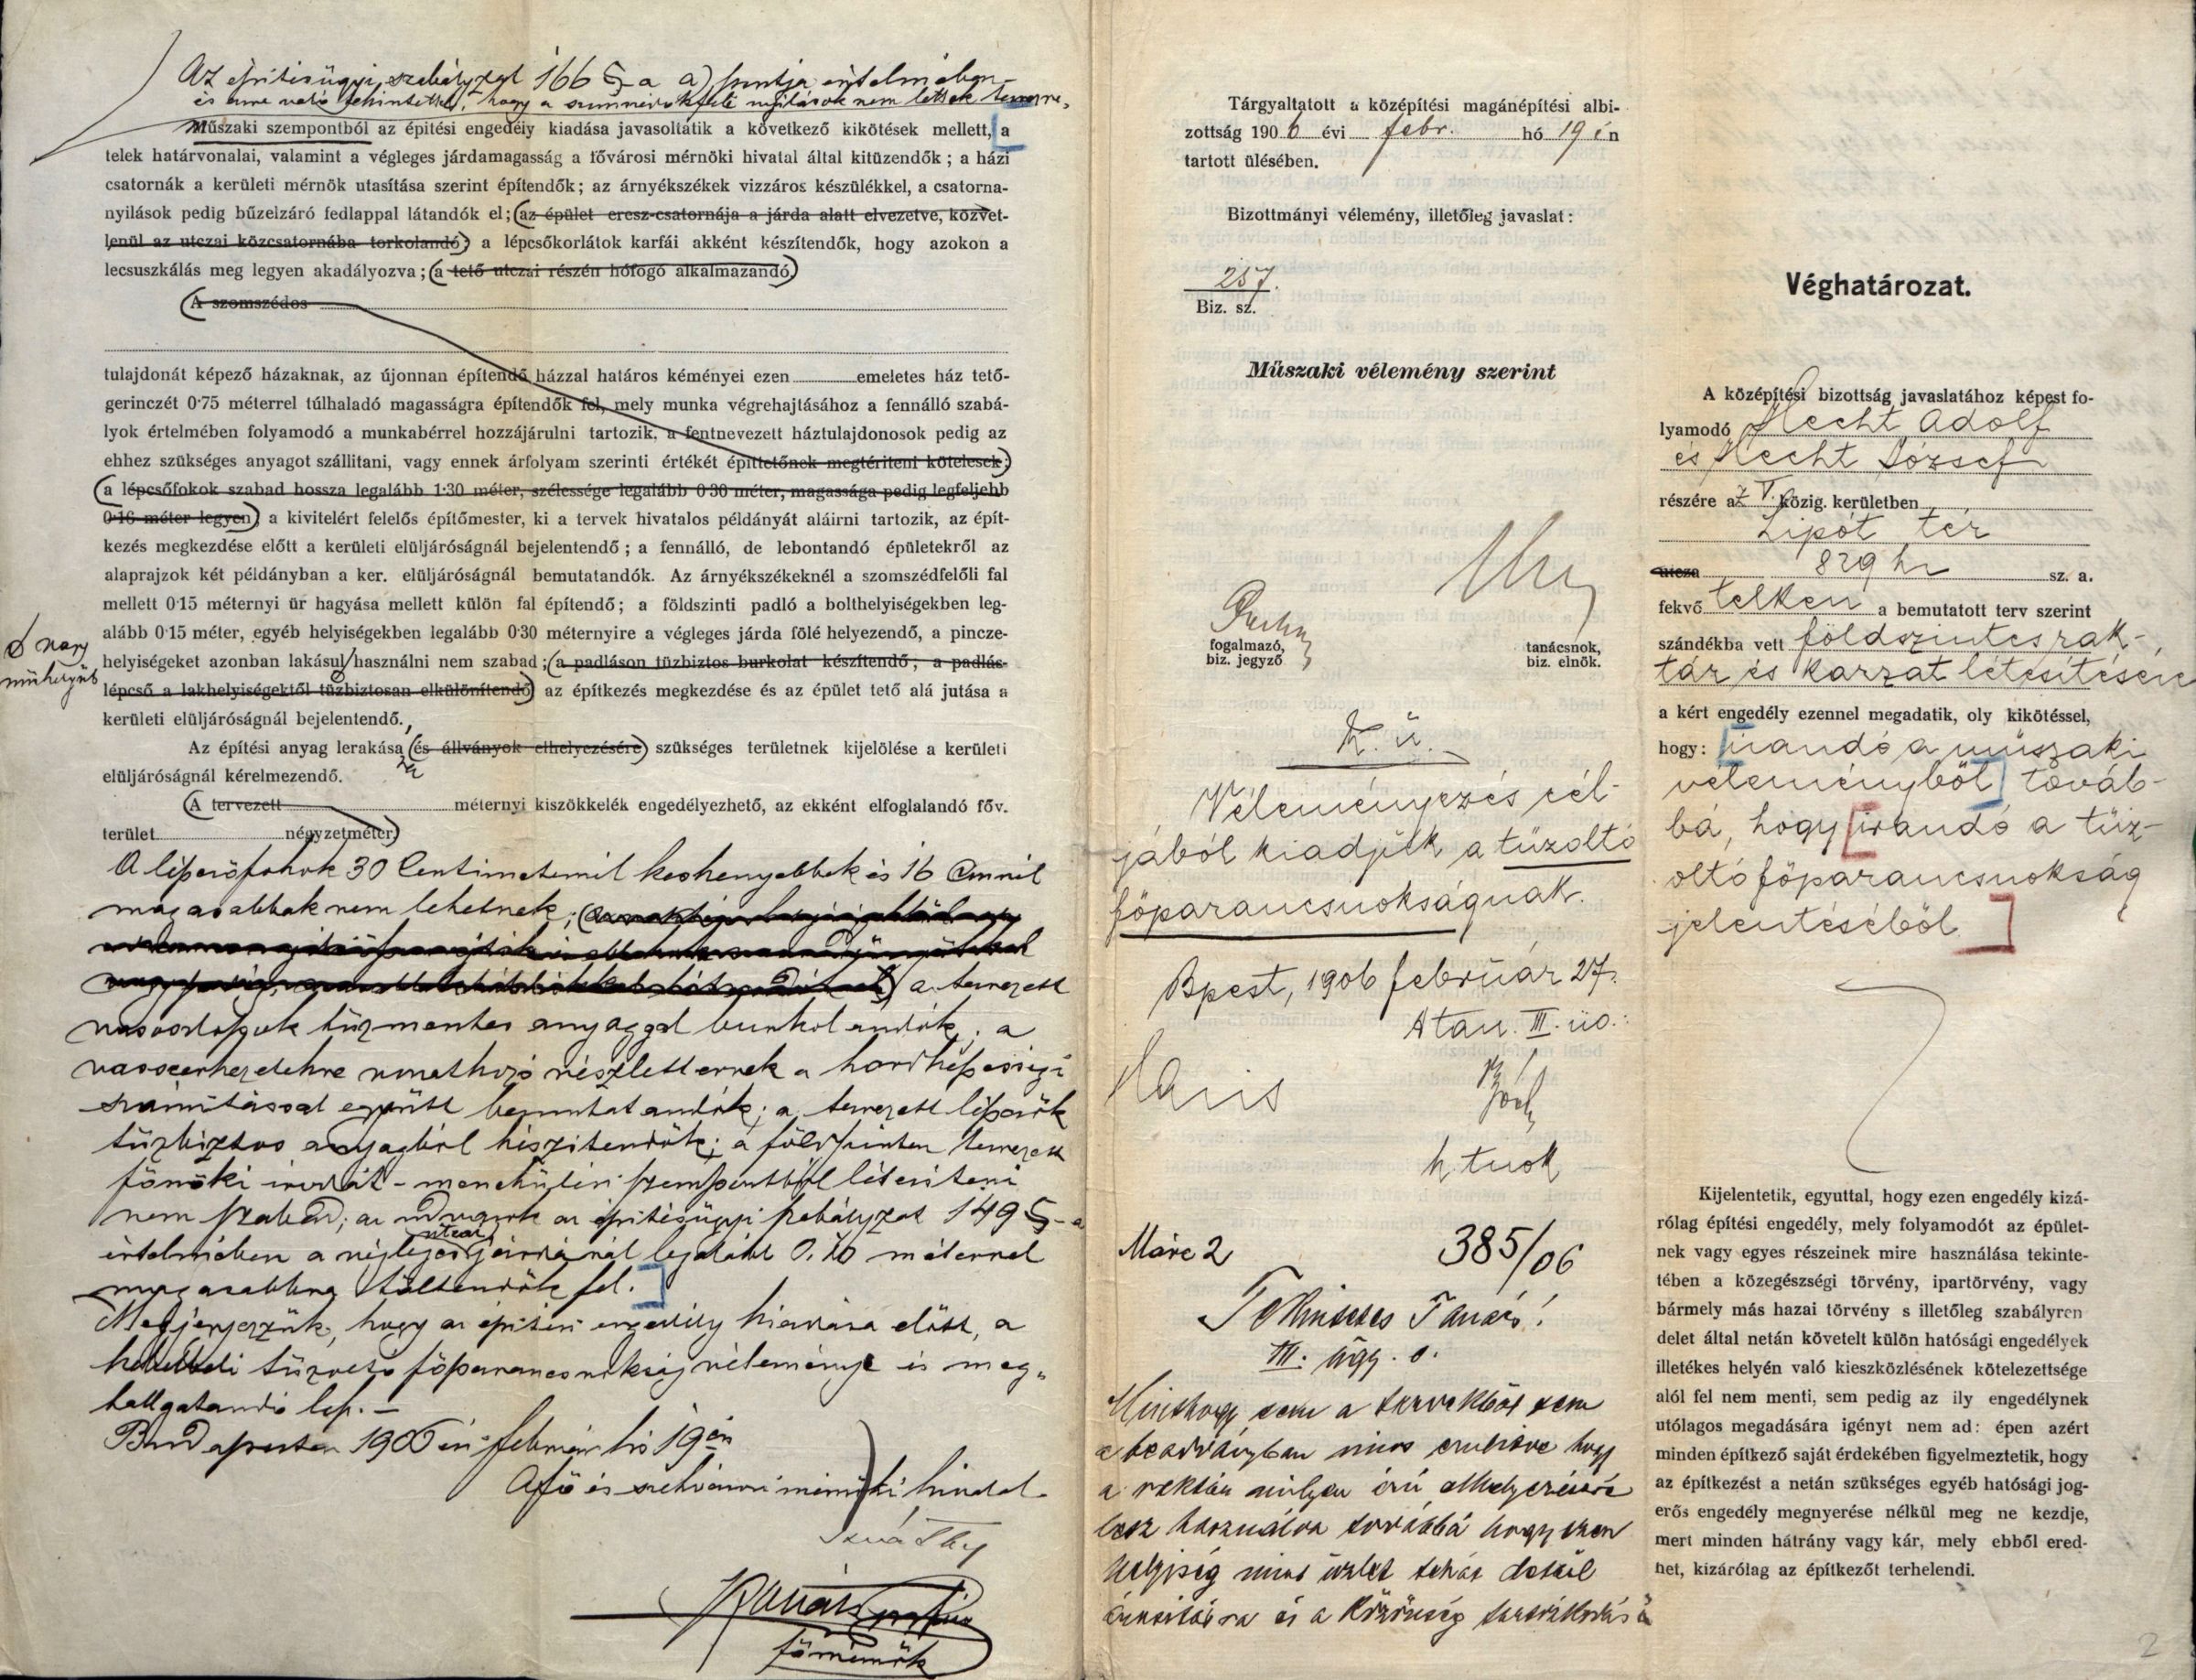 Az építésügyi szabályzat 166 §-a a) pontja értelmében
és arra való tekintettel, hogy a nyilások nem lettek
Műszaki szempontból az épitési engedély kiadása javasoltatik a következő kikötések mellett, a
telek határvonalai, valamint a végleges járdamagasság a fővárosi mérnöki hivatal által kitüzendők; a házi
csatornák a kerületi mérnök utasítása szerint építendők; az árnyékszékek vizzáros készülékkel, a csatorna-
nyilások pedig bűzelzáró fedlappal látandók el; (az épület eresz-csatornája a járda alatt elvezetve, közvet-
lenül az utczai közcsatornába torkolandó) a lépcsőkorlátok karfái akként készítendők, hogy azokon a
lecsuszkálás meg legyen akadályozva; (a tető utczai részén hófogó alkalmazandó)
(A szomszédos
tulajdonát képező házaknak, az újonnan építendő házzal határos kéményei ezen emeletes ház tető-
gerinczét 0·75 méterrel túlhaladó magasságra építendők fel, mely munka végrehajtásához a fennálló szabá-
lyok értelmében folyamodó a munkabérrel hozzájárulni tartozik, a fentnevezett háztulajdonosok pedig az
ehhez szükséges anyagot szállitani, vagy ennek árfolyam szerinti értékét építtetőnek megtéríteni kötelesek;)
(a lépcsőfokok szabad hossza legalább 1·30 méter, szélessége legalább 0·30 méter, magassága pedig legfeljebb
0·16 méter legyen) a kivitelért felelős építőmester, ki a tervek hivatalos példányát aláirni tartozik, az épít-
kezés megkezdése előtt a kerületi elüljáróságnál bejelentendő; a fennálló, de lebontandó épületekről az
alaprajzok két példányban a ker. elüljáróságnál bemutatandók. Az árnyékszékeknél a szomszédfelőli fal
mellett 0·15 méternyi ür hagyása mellett külön fal építendő; a földszinti padló a bolthelyiségekben leg-
alább 0·15 méter, egyéb helyiségekben legalább 0·30 méternyire a végleges járda fölé helyezendő, a pincze-
vagy
műhelyül
helyiségeket azonban lakásul használni nem szabad; (a padláson tüzbiztos burkolat készítendő; a padlás-
lépcső a lakhelyiségektől tüzbiztosan elkülönítendő) az építkezés megkezdése és az épület tető alá jutása a
kerületi elüljáróságnál bejelentendő.
Az építési anyag lerakása (és állványok elhelyezésére) szükséges területnek kijelölése a kerületi
ra
elüljáróságnál kérelmezendő.
(A tervezett méternyi kiszökkelék engedélyezhető, az ekként elfoglalandó főv.
terület négyzetméter)
A lépcsőfokok 30 Centimeternél keskenyebbek és 16 Cmnél
magasabbak nem lehetnek;
a tervezett
vasoszlopok tűzmentes anyaggal burkolandók; a
vasszerkezetekre vonatkozó részlettervek a hordképességi
számítással együtt bemutatandók; a tervezett lépcsők
tűzbiztos anyagból készítendők; a földszinten tervezett
főnöki irodát - menekülési szempontból létesíteni
nem szabad; az udvarok az építésügyi szabályzat 149 §-a
értelmében a végleges utcai járdánál legalább 0.10 méterrel
magasabbra töltendők fel.
Megjegyezzük, hogy az építési engedély kiadása előtt, a
tűzoltó főparancsnokság véleménye is meg-
hallgatandó lesz. -
Budapesten 1906 évi február hó 19én
A fő és székvárosi mérnöki hivatal
főmérnök
Tárgyaltatott a középítési magánépítési albi-
zottság 1906 évi febr. hó 19 én
tartott ülésében.
Bizottmányi vélemény, illetőleg javaslat:
257.
Biz. sz.
Műszaki vélemény szerint
fogalmazó,
biz. jegyző
tanácsnok,
biz. elnök.
K. ü.
Véleményezés cél-
jából kiadjuk a tűzoltó
főparancsnokságnak.
Bpest, 1906 február 27.
A tan. III. üo.:
h. tnok
Márc 2
385/06
Tekintetes Tanács!
III. ügy. o.
Minthogy sem a tervekből sem
a beadványban nincs említve hogy
a raktár milyen árú elhelyezésére
lesz használva továbbá hogy ezen
helyiség mint üzlet tehát detail
árusításra és a közönség tartózkodására
Véghatározat.
A középítési bizottság javaslatához képest fo-
lyamodó Hecht Adolf
és Hecht József
részére az V. közig. kerületben
Lipót tér
utcza 829 hr sz. a.
fekvő telken a bemutatott terv szerint
szándékba vett földszintes rak-
tár és karzat létesítésére
a kért engedély ezennel megadatik, oly kikötéssel,
hogy: irandó a műszaki
véleményből továb-
bá, hogy irandó a tűz-
oltó főparancsnokság
jelentéséből
Kijelentetik, egyuttal, hogy ezen engedély kizá-
rólag építési engedély, mely folyamodót az épület-
nek vagy egyes részeinek mire használása tekinte-
tében a közegészségi törvény, ipartörvény, vagy
bármely más hazai törvény s illetőleg szabályren
delet által netán követelt külön hatósági engedélyek
illetékes helyén való kieszközlésének kötelezettsége
alól fel nem menti, sem pedig az ily engedélynek
utólagos megadására igényt nem ad: épen azért
minden építkező saját érdekében figyelmeztetik, hogy
az építkezést a netán szükséges egyéb hatósági jog-
erős engedély megnyerése nélkül meg ne kezdje,
mert minden hátrány vagy kár, mely ebből ered-
het, kizárólag az építkezőt terhelendi.
2